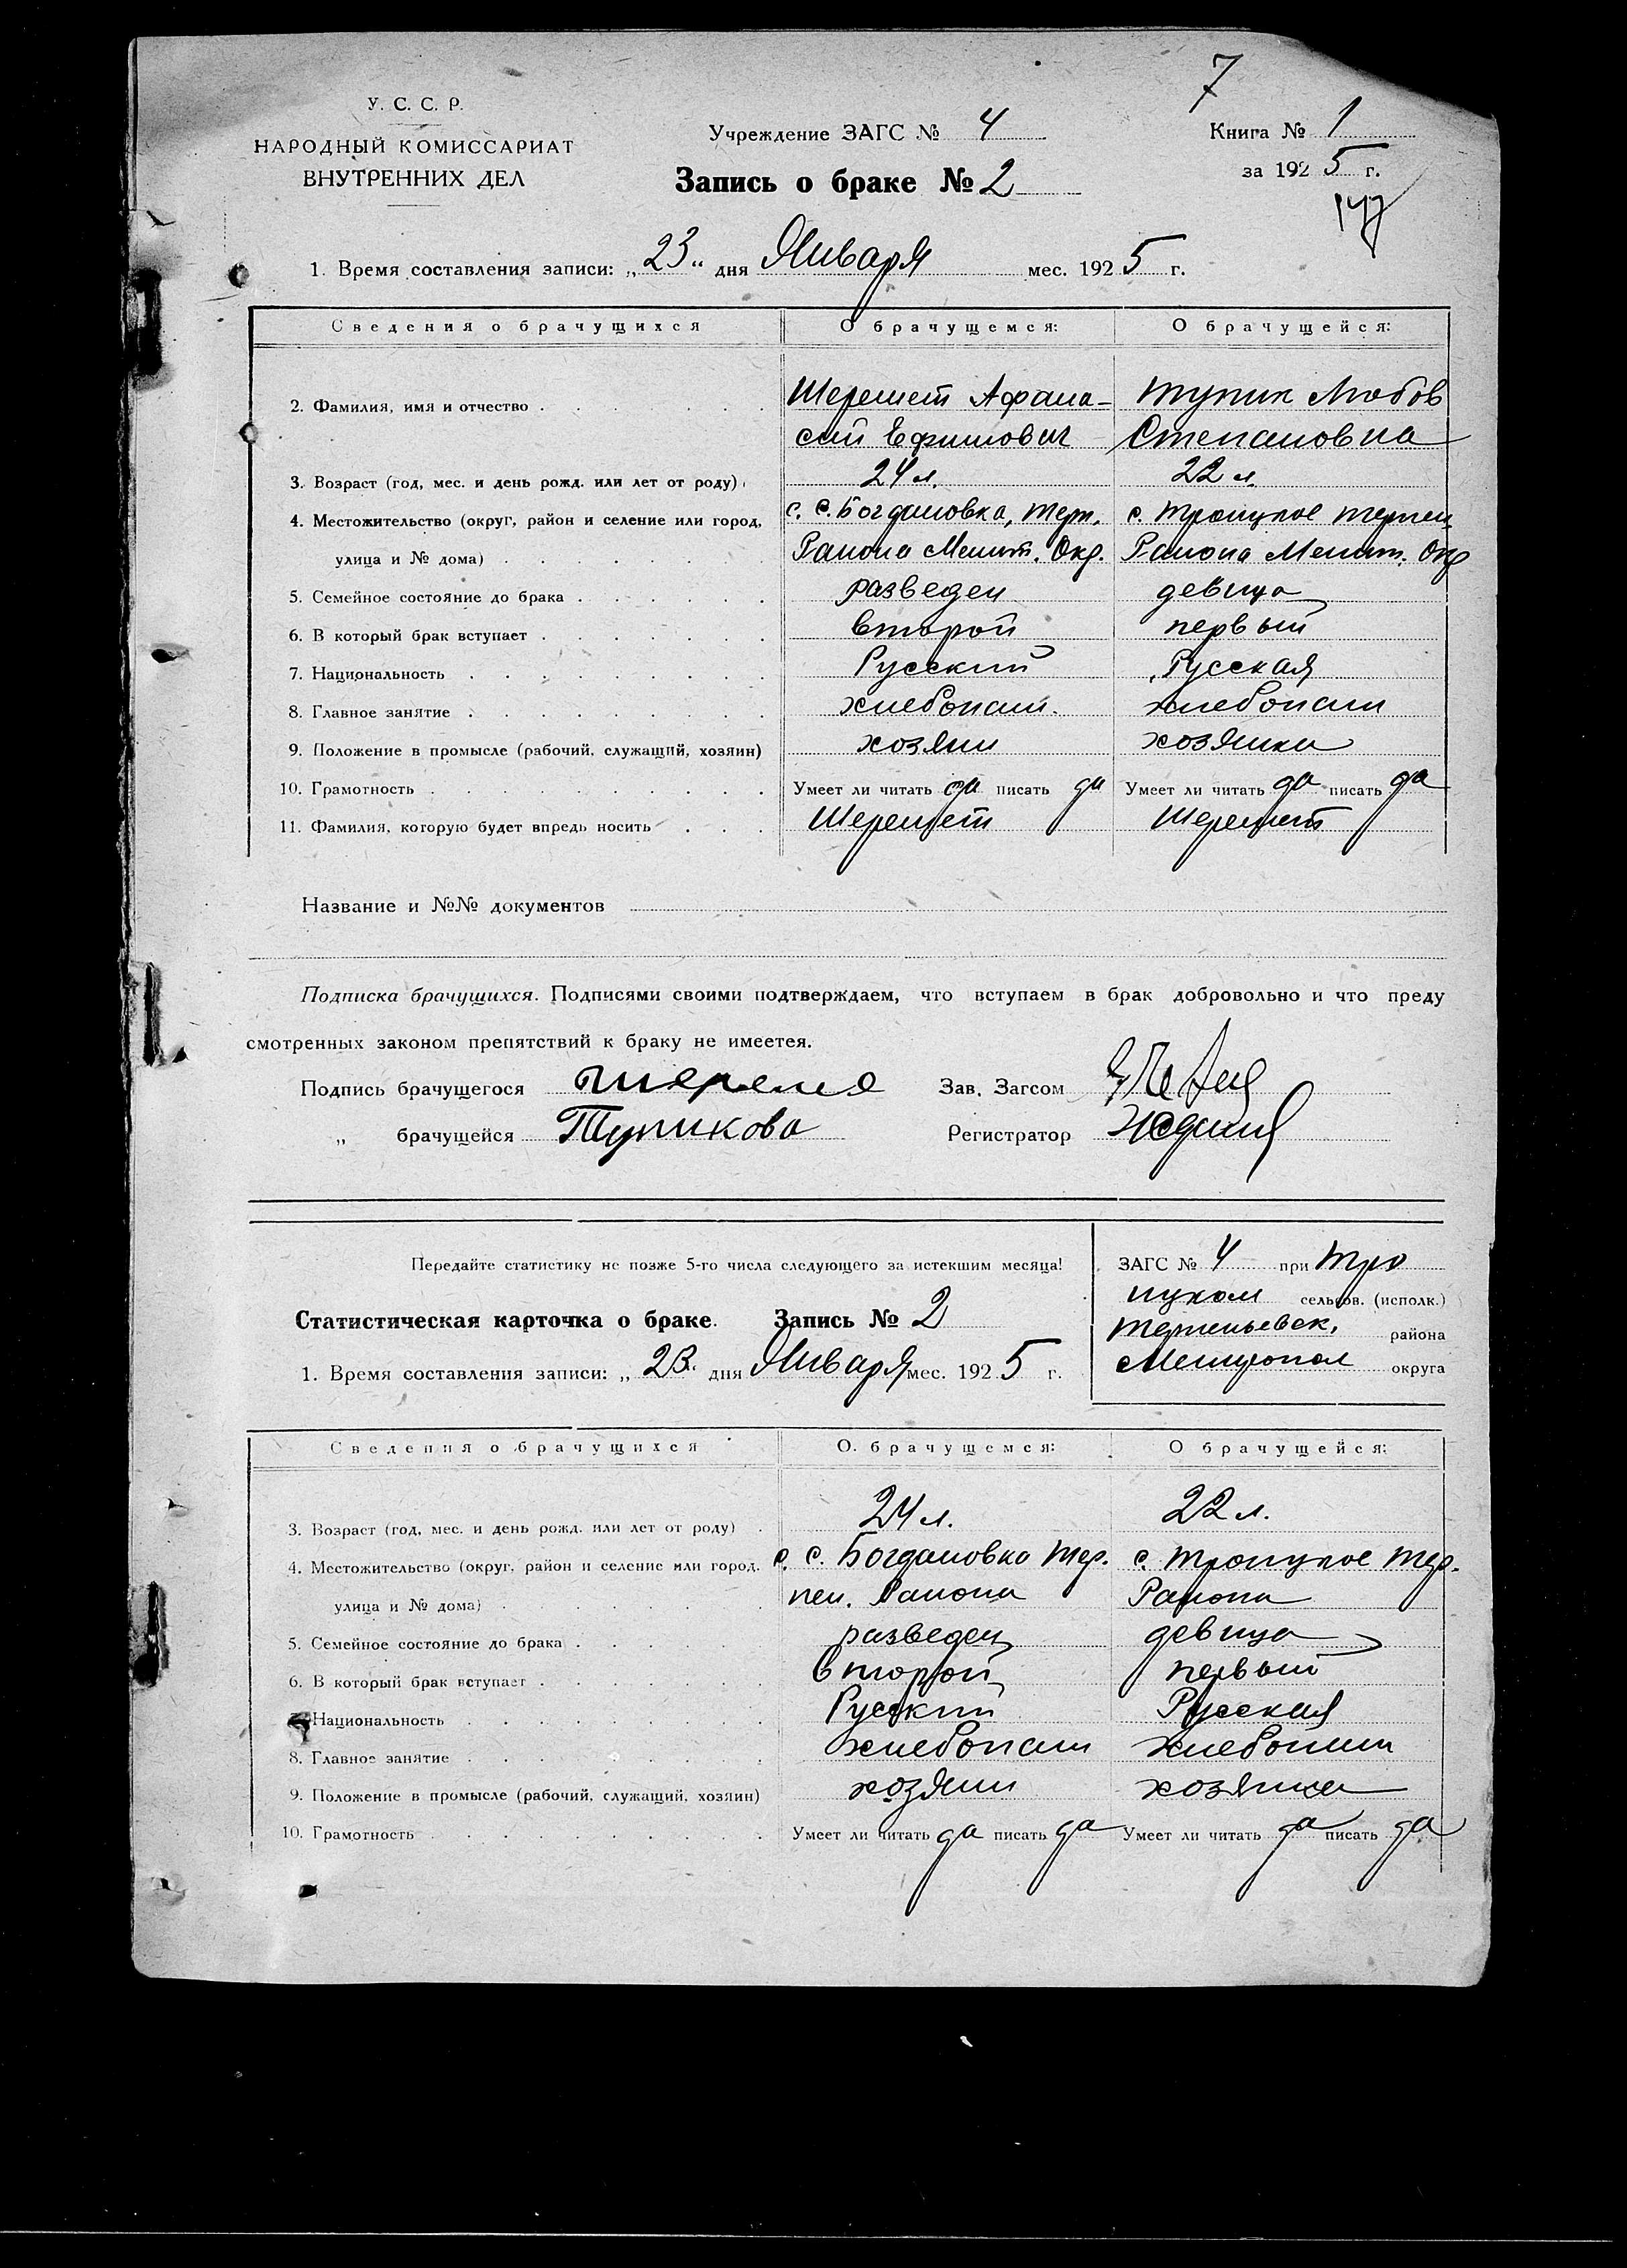 7
У. С. С. Р.
НАРОДНЫЙ КОМИССАРИАТ
ВНУТРЕННИХ ДЕЛ
Учреждение ЗАГС № 4
Книга № 1
Запись о браке № 2
за 1925 г.
147
1. Время составления записи: „23“ дня Января мес. 1925 г.
Сведения о брачущихся О брачущемся: О брачущейся:
2. Фамилия, имя и отчество Шеремет Афана- Тупик Любов
сий Ефимович Степановна
3. Возраст (год, мес. и день рожд. или лет от роду) 24 л. 22 л.
4. Местожительство (округ, район и селение или город, с. с. Богдановка, Терп. с. Троицкое Терпен.
улица и № дома) Района Мелит. Окр. Района Мелит. Окр
5. Семейное состояние до брака разведен девица
6. В который брак вступает второй первый
7. Национальность Русский Русская
8. Главное занятие хлебопаш. хлебопаш
9. Положение в промысле (рабочий, служащий, хозяин) хозяин хозяйка
10. Грамотность Умеет ли читать да писать да Умеет ли читать да писать да
11. Фамилия, которую будет впредь носить Шеремет Шеремет
Название и №№ документов
Подписка брачущихся. Подписями своими подтверждаем, что вступаем в брак добровольно и что преду
смотренных законом препятствий к браку не имеетея.
Подпись брачущегося Зав. Загсом
„ брачущейся Тупикова Регистратор
Передайте статистику не позже 5-го числа следующего за истекшим месяца!
ЗАГС № 4 при Тро
ицком сельсов. (исполк.)
Статистическая карточка о браке. Запись № 2
Терпеньевск. района
1. Время составления записи: „23“ дня Января мес. 1925 г.
Мелитопол округа
Сведения о брачущихся О. брачущемся: О брачущейся:
3. Возраст (год, мес. и день рожд. или лет от роду) 24 л. 22 л.
4. Местожительство (округ, район и селение или город. с. с. Богдановка Тер. с. Троицкое Тер.
улица и № дома) пен. Района Района
5. Семейное состояние до брака разведен девица
6. В который брак вступает второй первый
7. Национальность Русский Русская
8. Главное занятие хлебопаш хлебопаш
9. Положение в промысле (рабочий, служащий, хозяин) хозяин хозяйка
10. Грамотность Умеет ли читать да писать да Умеет ли читать да писать да